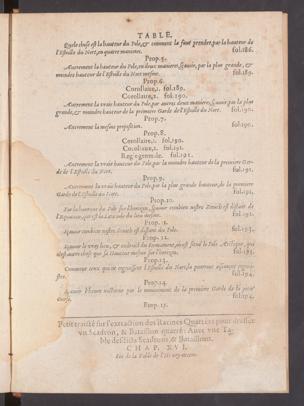 TABLE.
Quelle chose est la hauteur du Pole, & comment la faut prendre, par la hauteur de
l'Estoille du Nort, en quatre manieres. fol.186.
Prop.5.
Autrement la hauteur du Pole, en deux manieres, sçauoir, par la plus grande, &
moindre hauteur de l'Estoille du Nort mesme. fol.189.
Prop.6.
Corollaire,1. fol.189.
Corollaire,2. fol.190.
Autrement la vraie hauteur du Pole, par autres deux manieres, sçauoir, par la plus
grande, & moindre hauteur de la premiere Garde de l'Estoille du Nort. fol.190.
Prop.7.
Autrement la mesme proposition. fol.190.
Prop.8.
Corollaire,1. fol.190.
Corollaire,2. fol.191.
Reg. generale. fol.191.
Autrement la vraie hauteur du Pole, par la moindre hauteur de la premiere Gar-
de de l'Estoille du Nort. fol.191.
Prop.9.
Autrement la vraie hauteur du Pole, par la plus grande hauteur, de la premiere
Garde de l'Estoille du Nort. fol.192.
Prop.10.
Par la hauteur du Pole sur l'horizon, sçauoir combien nostre Zenith est distant de
l'Equateur, qui est la Latitude du lieu mesme. fol.
Prop. 11.
Sçauoir combien nostre Zenith est distant du Pole. fol.193.
Prop. 12.
Sçauoir le vray lieu, & endroit du firmament, où est situé le Pole Arctique, qui
est autre chose que la hauteur mesme sur l'horizon. fol.193.
Prop.13.
Comment ceux qui ne cognoissent l'Estoille du Nort, la pourront aisement cognoi-
stre. fol.194.
Prop.14.
Sçauoir l'heure nocturne par le mouuement de la premiere Garde de la petite
Ourse. fol.194.
Prop. 15.
Petit traicté sur l'extraction des Racines Quarrées pour dresser
vn Scadron, & Bataillon quarré: Auec vne Ta-
ble desdicts Scadrons, & Bataillons.
CHAP. XVI.
Fin de la Table de l'Art